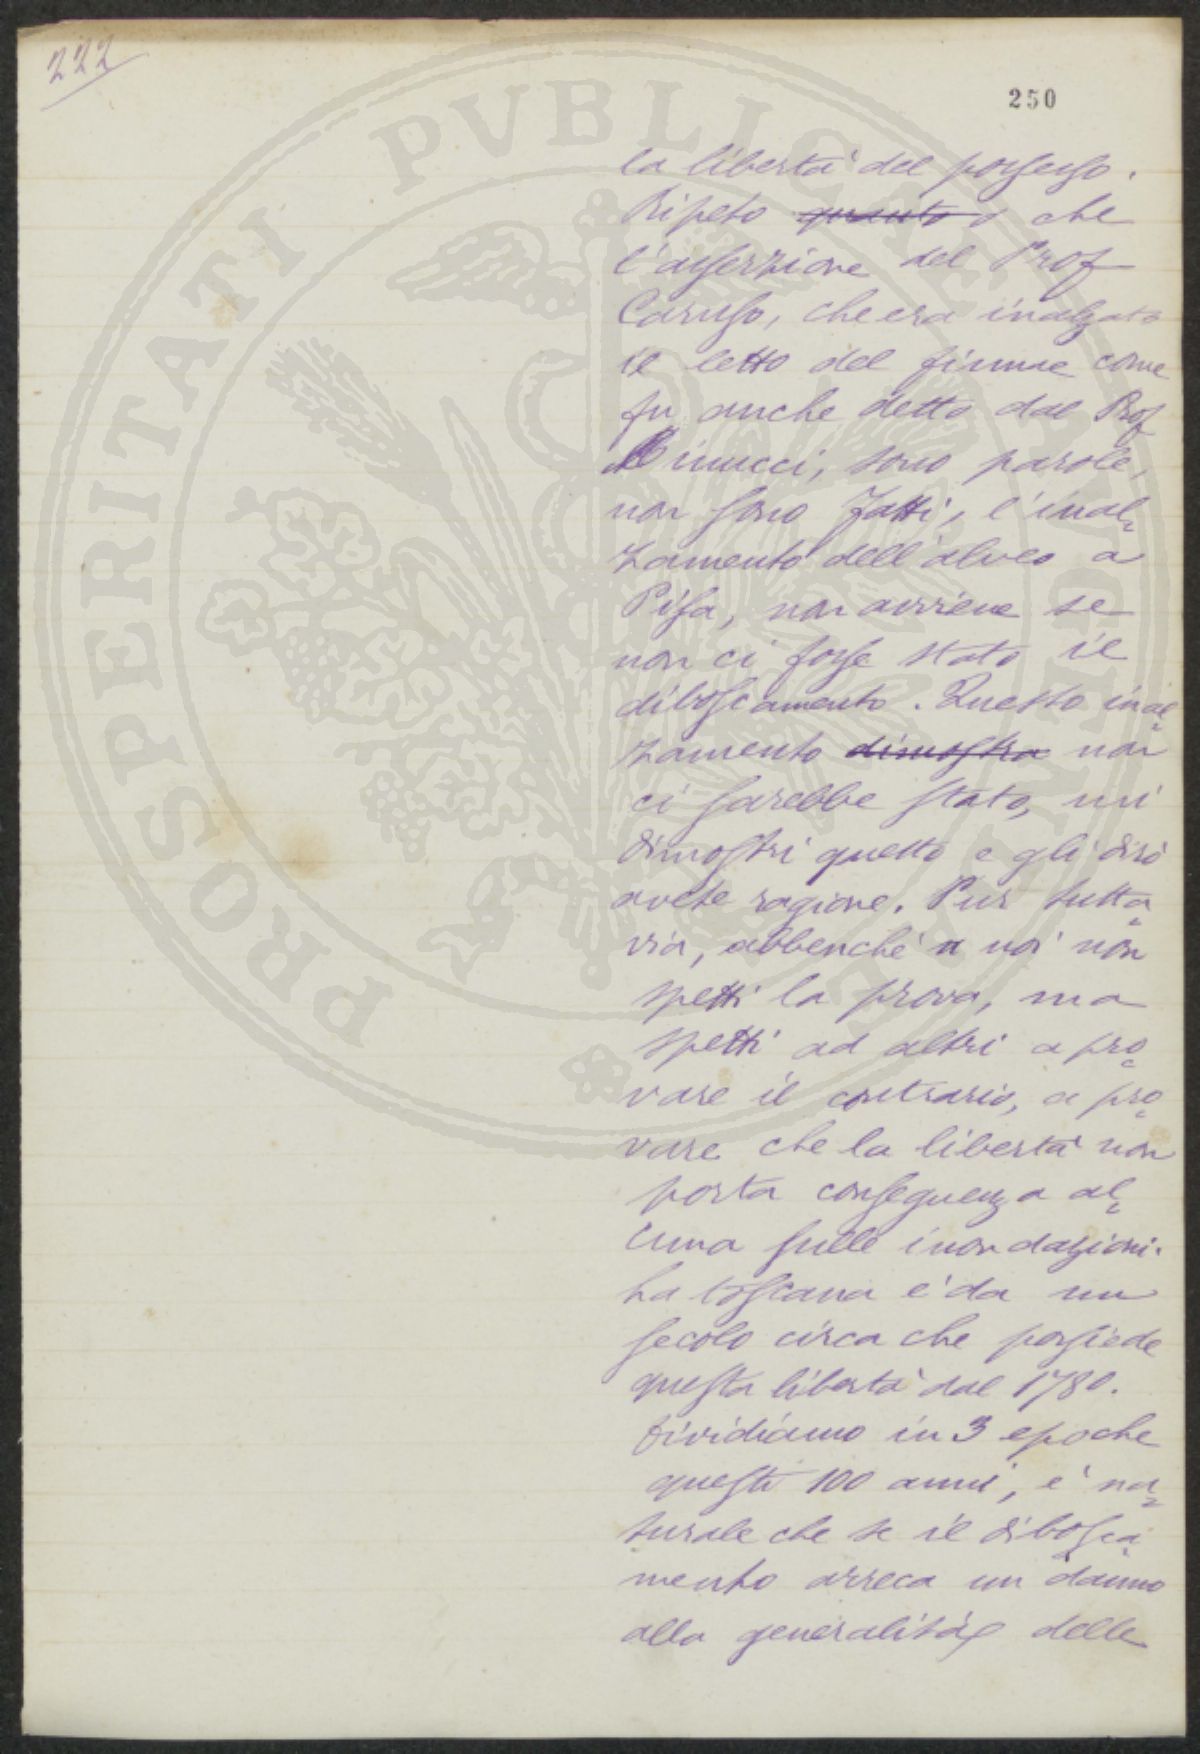 222
250
la libertà del possesso.
Ripeto quanto che
l'asserzione del Prof
Caruso, che era inalzato
il letto del fiume come
fu anche detto dal Prof
Minucci, sono parole,
non sono fatti, l'inal=
zamento dell'alveo a
Pisa, non avviene se
non ci fosse stato il
diboscamento. Questo inal=
zamento dimostra non
ci sarebbe stato, mi
dimostri questo e gli dirò
avete ragione. Pur tutta=
via, abbenchè a noi non
spetti la prova, ma
spetti ad altri a pro=
vare il contrario, a pro=
vare che la libertà non
porta conseguenza al=
cuna sulle inondazioni.
La toscana è da un
secolo circa che possiede
questa libertà dal 1780.
Dividiamo in 3 epoche
questi 100 anni, è na=
turale che se il dibosca=
mento arreca un danno
alla generalità delle
PROSPERITATI PVBLICAE AVGENDAE